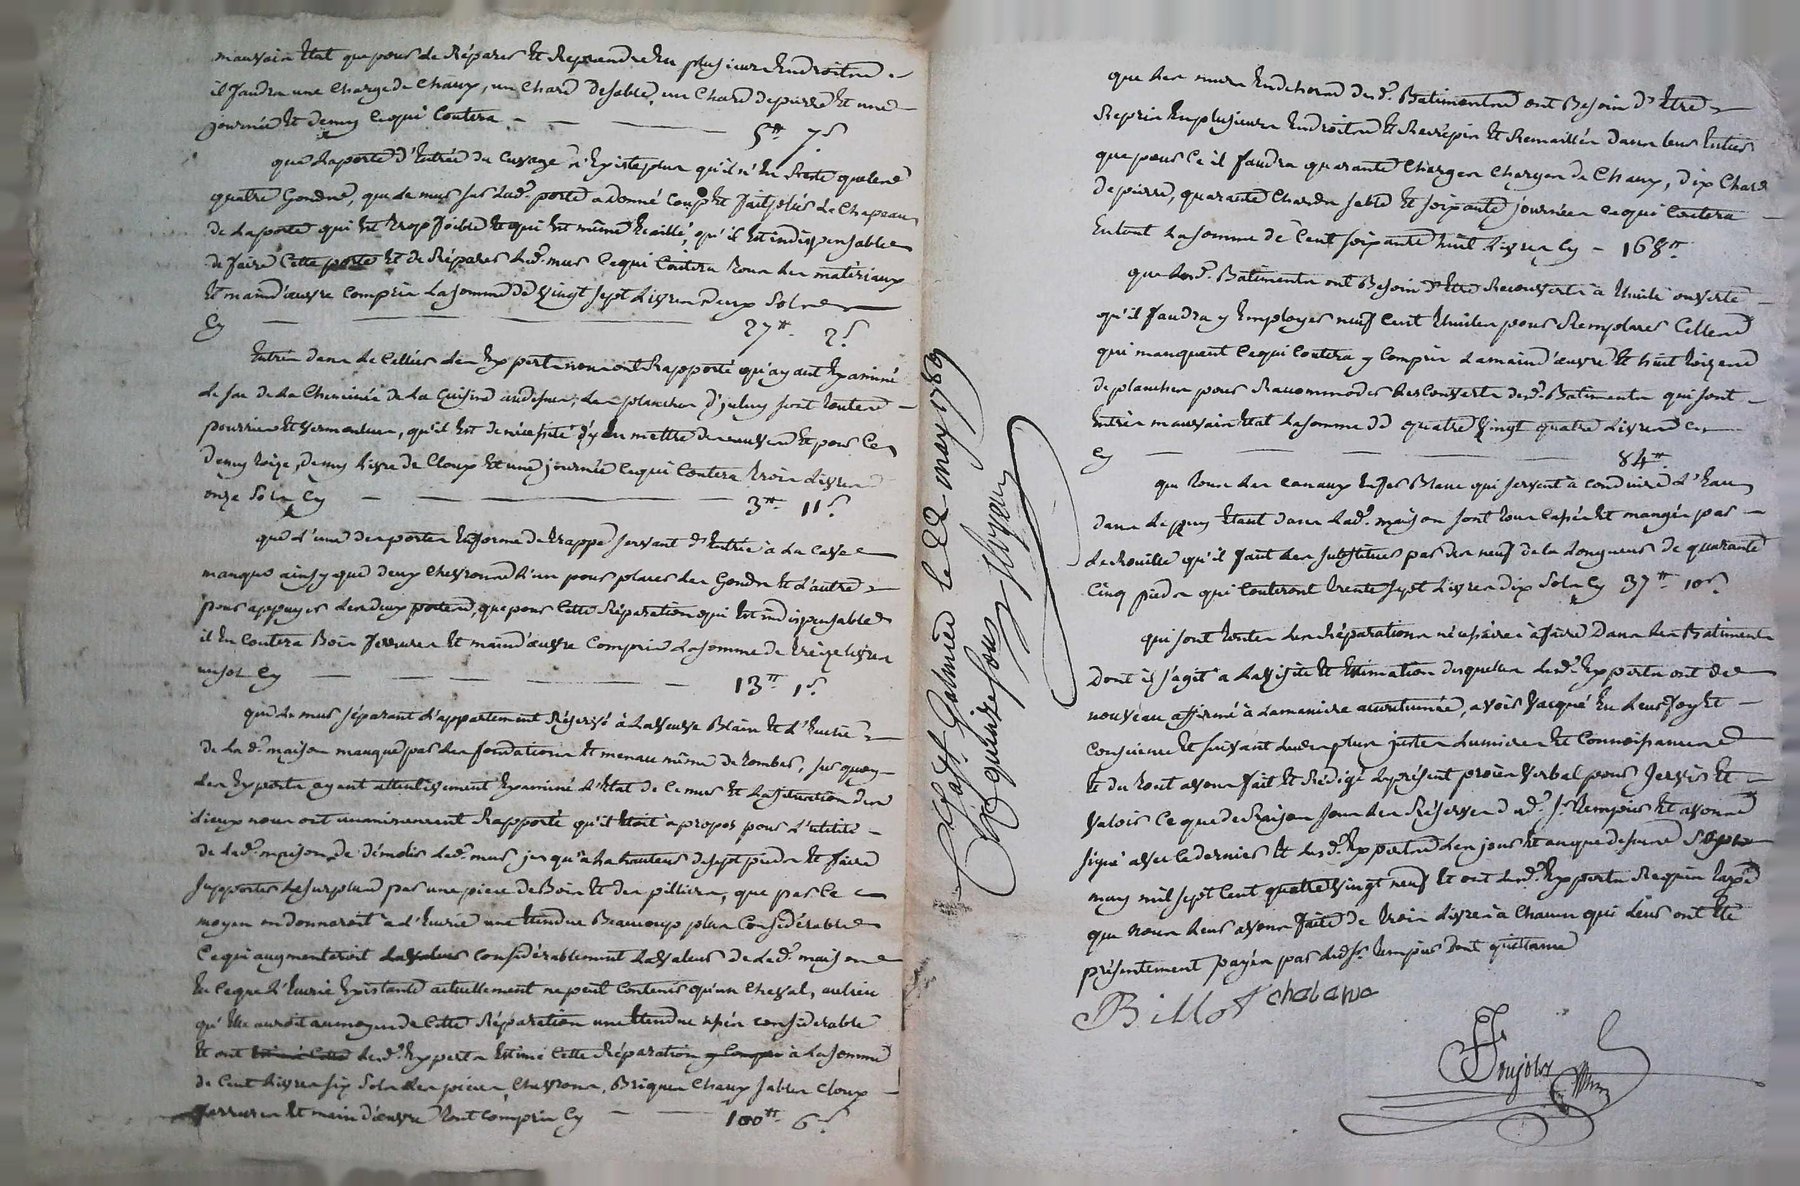 mauvais Etat que pour le Réparer Et Reprendre En plusieurs Endroitnd
il faudra une Charge de Chaux, un Chard de sable, un Chard de pierre Et une
journée Et demy ce qui Coutera 5tt 7s.
que la porte d'Entrée du Cuvage n'Existe plus qu'il n'En Reste que les
quatre Gonds, que le mur sur lade. porte a donné coup Et fait plier le Chapeau
de la porte qui Est trop foible Et qui Est même Ecaillé, qu'il Est indispensable
de faire Cette porte Et de Réparer led. mur Ce qui Coutera tous les matériaux
Et main d'œuvre Compris la somme de vingt sept Livres deux Sols
Cy 27tt. 2s.
Entrés dans le Cellier les Experts nous ont Rapporté qu'ayant Examiné
le sac de la Cheminée de la Cuisine au dessus, les planches d'iceluy sont toutes
pourries Et vermoulues, qu'il Est de nécessité d'y En mettre de neuves Et pour Ce
demy toize, demy Livre de Cloux Et une journée Ce qui Coutera trois Livres
onze Sols Cy 3tt 11s.
que d'une des portes En forme de trappe servant d'Entrée à la Cave
manque ainsy que deux Chevrons l'un pour placer les Gonds Et l'autre
pour appuyer les deux portes, que pour Cette Réparation qui Est indispensable
il En Coutera Bois ferrures Et main d'œuvre Compris la somme de treize livres
un sol Cy 13tt 1s.
que le mur séparant l'appartement Réservé à la veuve Blain Et l'Ecurie
de lade. maison manque par les fondations Et menace même de tomber, sur quoy
les Experts ayant attentivement Examiné l'Etat de Ce mur Et la situation des
lieux nous ont unanimement Rapporté qu'il Etoit a propos pour l'utilité
de lade. maison de démolir led. mur jusqu'à la hauteur de sept pieds Et faire
supporter le surplus par une piece de Bois Et des pilliers, que par Ce
moyen on donneroit à l'Ecurie une Etendue Beaucoup plus Considérable
Ce qui augmenteroit la valeur considérablement la valeur de lade. maison
En Ce que l'Ecurie Existante actuellement ne peut Contenir qu'un Cheval, au lieu
qu'Elle auroit au moyen de Cette Réparation une Etendue considerable
Et ont Estimé Cette lesd. Experts Estimé Cette Réparation y Compris à la somme
de Cent Livres six Sols les pieces, Chevrons, Briques Chaux sables Cloux
ferrures Et main d'œuvre tout compris Cy 100tt. 6s.
le 22 may 1789
quinze sous
que les murs En dehors desd. Batimentnd ont Besoin d'Etre
Repris En plusieurs Endroits Et Recrépis Et Remaillés dans leur Entier
que pour Ce il faudra quarante Charges Charges de Chaux, dix Chars
de pierre, quarante Chards sable Et soixante journées ce qui Coutera
En tout la somme de Cent soixante huit Livres Cy 168tt.
que lesd. Batiments ont Besoin d'Etre Recouverts à tuile ouverte
qu'il faudra y Employer neuf Cent tuiles pour Remplacer Celles
qui manquent Ce qui Coutera y Compris la main d'œuvre Et huit toizes
de planches pour Racommoder les Couverts desd. Batiments qui sont
En très mauvais Etat la somme de quatre vingt quatre Livres
Cy 84tt.
que tous les canaux En fer Blanc qui servent à conduire l'Eau
dans le puy Etant dans lade. maison sont tous cassés Et mangés par
la Rouille qu'il faut les substituer par des neufs de la longueur de quarante
Cinq pieds qui Couteront trente sept Livres dix Sols Cy 37tt 10s.
qui sont toutes les Réparations nécessaires à faire Dans les Batiments
Dont il s'agit à la visite Et Estimation desquelles lesd. Experts ont de
nouveau affirmé à la maniere accoutumée, avoir vacqué En leur foy Et
Conscience Et suivant leurs plus justes lumieres Et Connoissances
Et du tout avons fait Et Rédigé le présent procès verbal pour servir Et
valoir Ce que de Raison sous les Réserves dud. Sr. tempier Et avons
signé avec Ce dernier Et lesd. Experts les jour Et an que dessus
may mil sept Cent quatre vingt neuf Et ont lesd. Experts Requis taxe
que nous leur avons faite de trois Livres à Chacun qui leur ont Eté
présentement payés par led. Sr. tempier dont quittance
Billot chalane